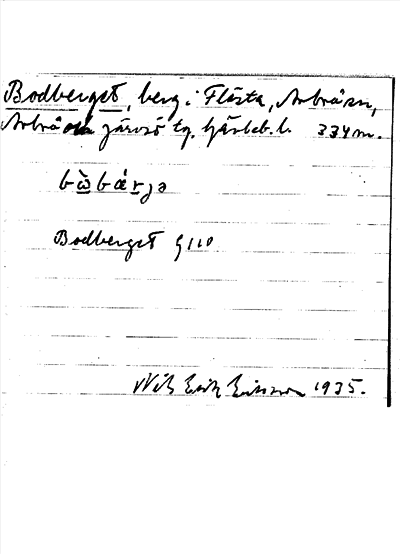 Bodberget, berg i Flästa, Arbrå sn,
Arbrå och Järvsö tg. Gävleb. l. 334 m.
bὼbǽrjə
Bodberget G110
Nils Erik Eriksson 1935.